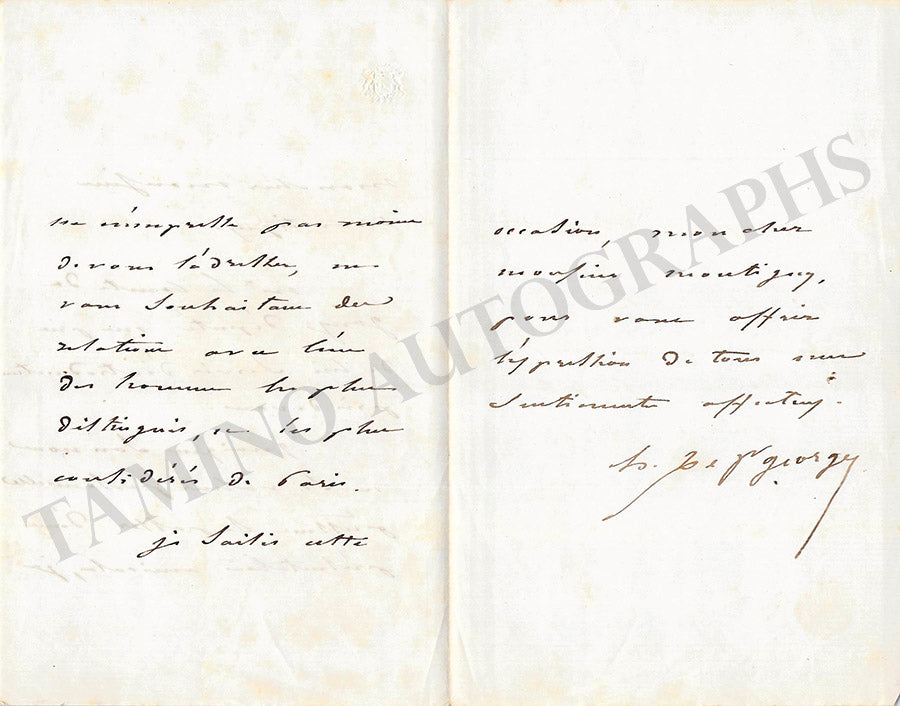 ne m'empresse pas moins
de vous l'adresser, en
vous souhaitant des
relations avec l'un
des hommes les plus
distingués, et les plus
considérés de Paris.
je saisis cette
occasion, mon cher
monsieur montigny,
pour vous offrir
l'expression de tous mes
sentiments affectueux.
h. De St georges
TAMINO AUTOGRAPHS